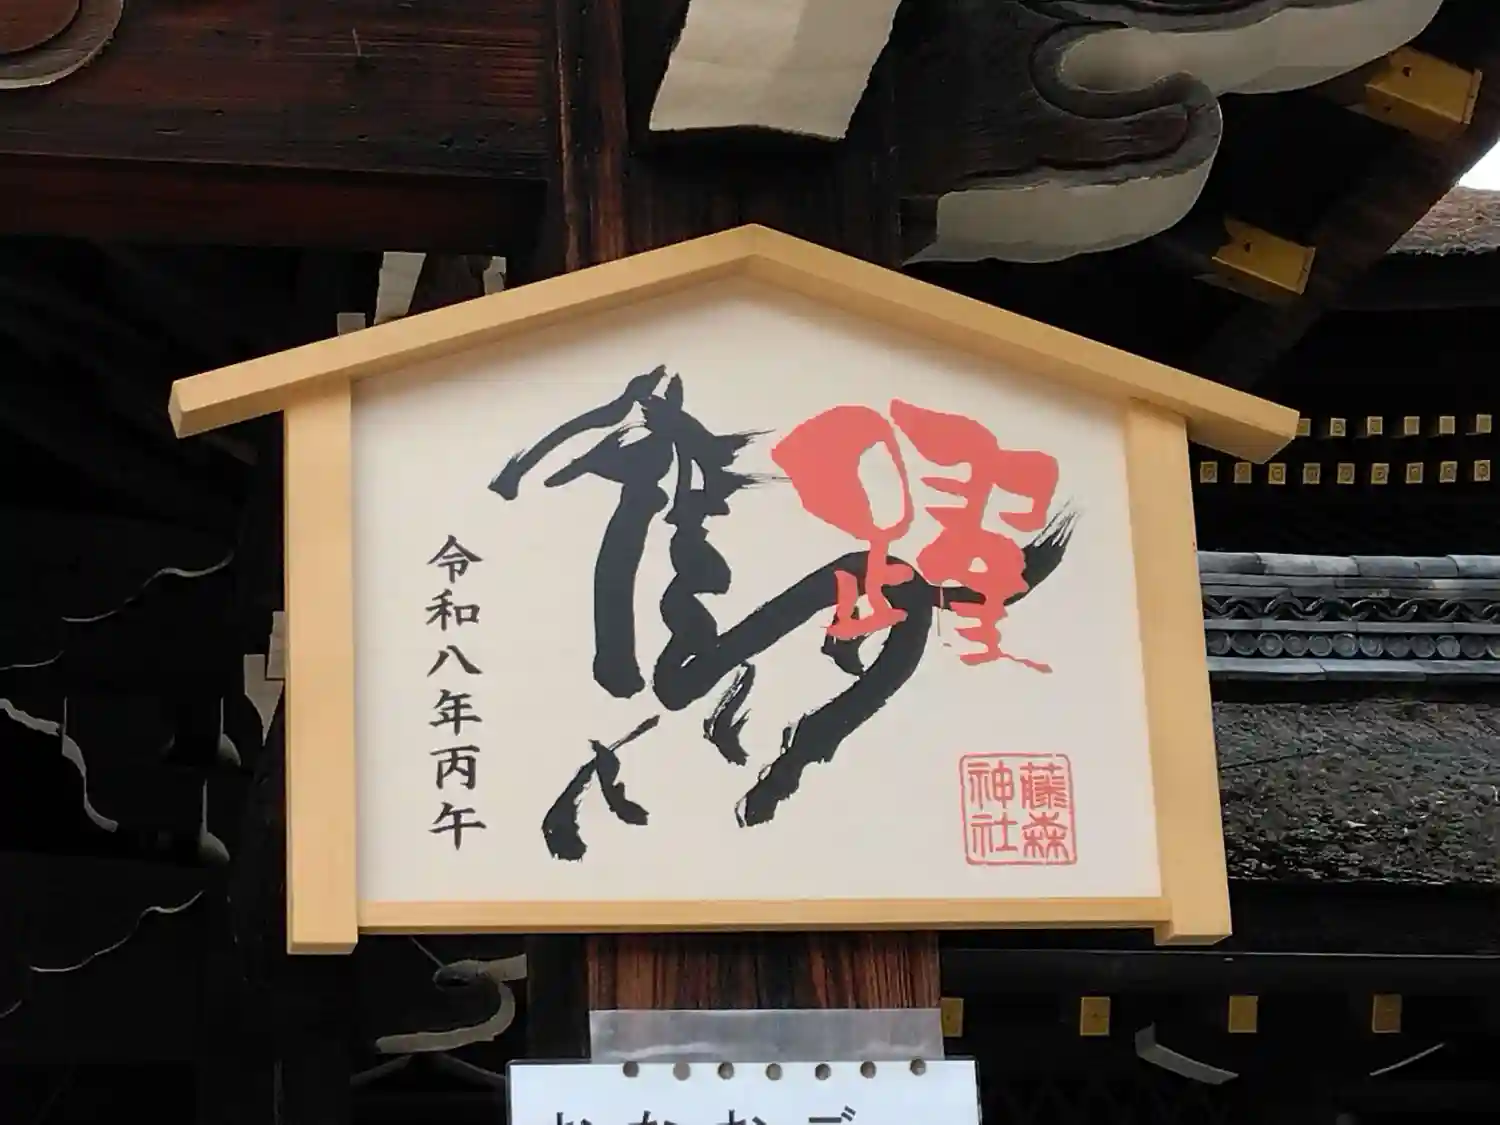 躍
馬
令和八年丙午
藤森
神社